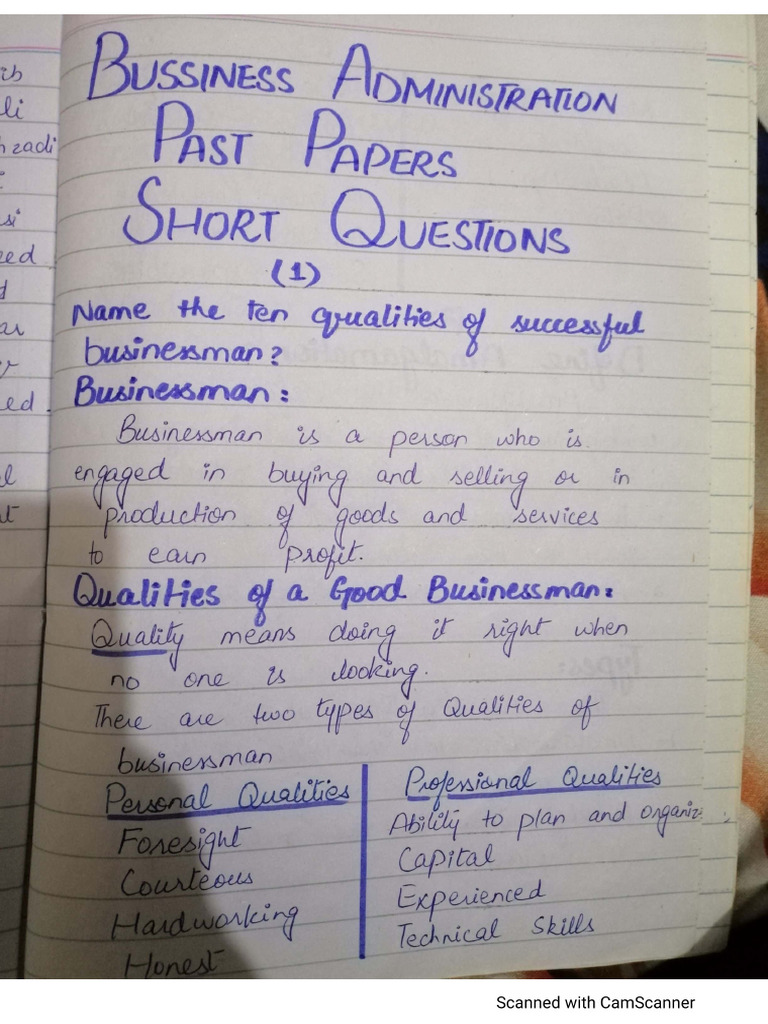 BUSSINESS ADMINISTRATION
PAST PAPERS
SHORT QUESTIONS
(1)
Name the ten qualities of successful
businessman?
Businessman:
Businessman is a person who is
engaged in buying and selling or in
production of goods and services
to earn profit.
Qualities of a Good Businessman:
Quality means doing it right when
no one is looking.
There are two types of Qualities of
businessman
Personal Qualities
Foresight
Courteous
Hardworking
Honest
Professional Qualities
Ability to plan and organiz
Capital
Experienced
Technical Skills
Scanned with CamScanner